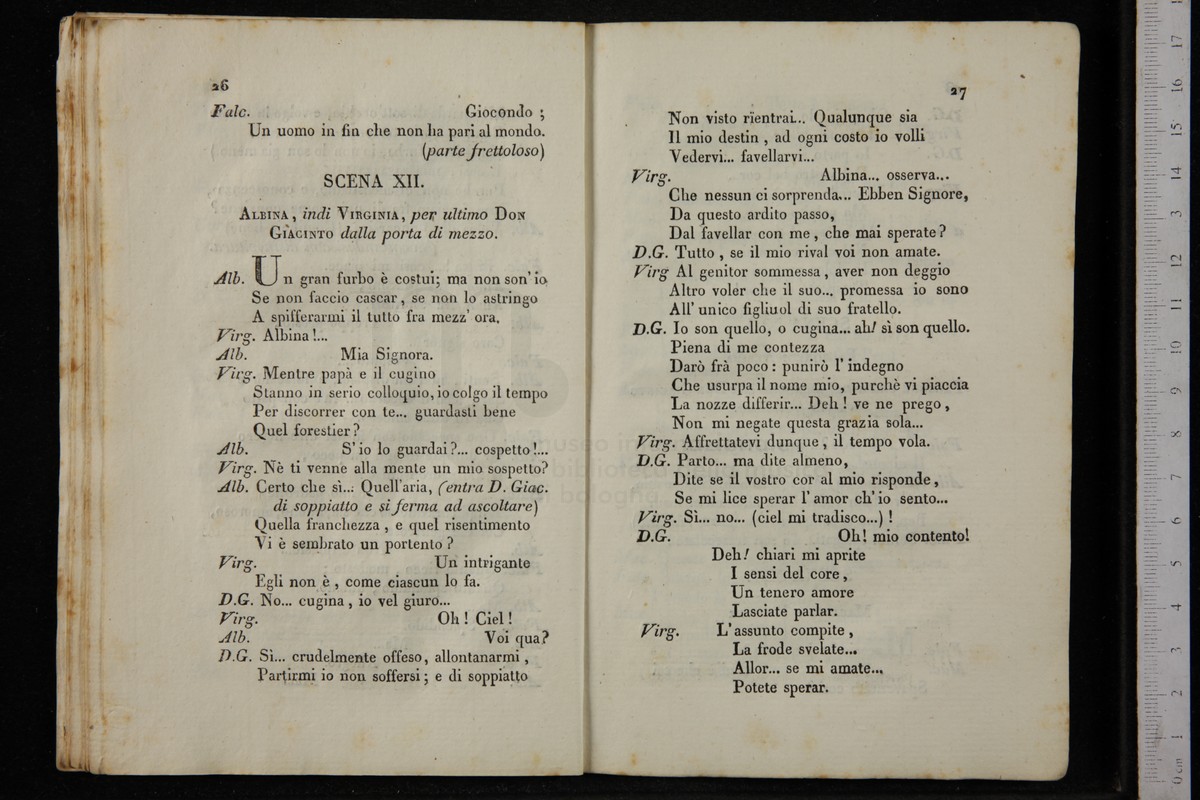 26
Falc. Giocondo ;
Un uomo in fin che non ha pari al mondo.
(parte frettoloso)
SCENA XII.
ALBINA, indi VIRGINIA, per ultimo DON
GIACINTO dalla porta di mezzo.
Alb. Un gran furbo è costui; ma non son' io
Se non faccio cascar, se non lo astringo
A spifferarmi il tutto fra mezz' ora.
Virg. Albina!...
Alb. Mia Signora.
Virg. Mentre papà e il cugino
Stanno in serio colloquio, io colgo il tempo
Per discorrer con te... guardasti bene
Quel forestier?
Alb. S' io lo guardai?... cospetto!...
Virg. Nè ti venne alla mente un mio sospetto?
Alb. Certo che sì... Quell'aria, (entra D. Giac.
di soppiatto e si ferma ad ascoltare)
Quella franchezza, e quel risentimento
Vi è sembrato un portento?
Virg. Un intrigante
Egli non è, come ciascun lo fa.
D.G. No... cugina, io vel giuro...
Virg. Oh! Ciel!
Alb. Voi qua?
D.G. Sì... crudelmente offeso, allontanarmi,
Partirmi io non soffersi; e di soppiatto
27
Non visto rientrai... Qualunque sia
Il mio destin, ad ogni costo io volli
Vedervi... favellarvi...
Virg. Albina... osserva...
Che nessun ci sorprenda... Ebben Signore,
Da questo ardito passo,
Dal favellar con me, che mai sperate?
D.G. Tutto, se il mio rival voi non amate.
Virg Al genitor sommessa, aver non deggio
Altro voler che il suo... promessa io sono
All' unico figliuol di suo fratello.
D.G. Io son quello, o cugina... ah! sì son quello.
Piena di me contezza
Darò frà poco: punirò l' indegno
Che usurpa il nome mio, purchè vi piaccia
La nozze differir... Deh! ve ne prego,
Non mi negate questa grazia sola...
Virg. Affrettatevi dunque, il tempo vola.
D.G. Parto... ma dite almeno,
Dite se il vostro cor al mio risponde,
Se mi lice sperar l' amor ch' io sento...
Virg. Sì... no... (ciel mi tradisco...)!
D.G. Oh! mio contento!
Deh! chiari mi aprite
I sensi del core,
Un tenero amore
Lasciate parlar.
Virg. L' assunto compite,
La frode svelate...
Allor... se mi amate...
Potete sperar.